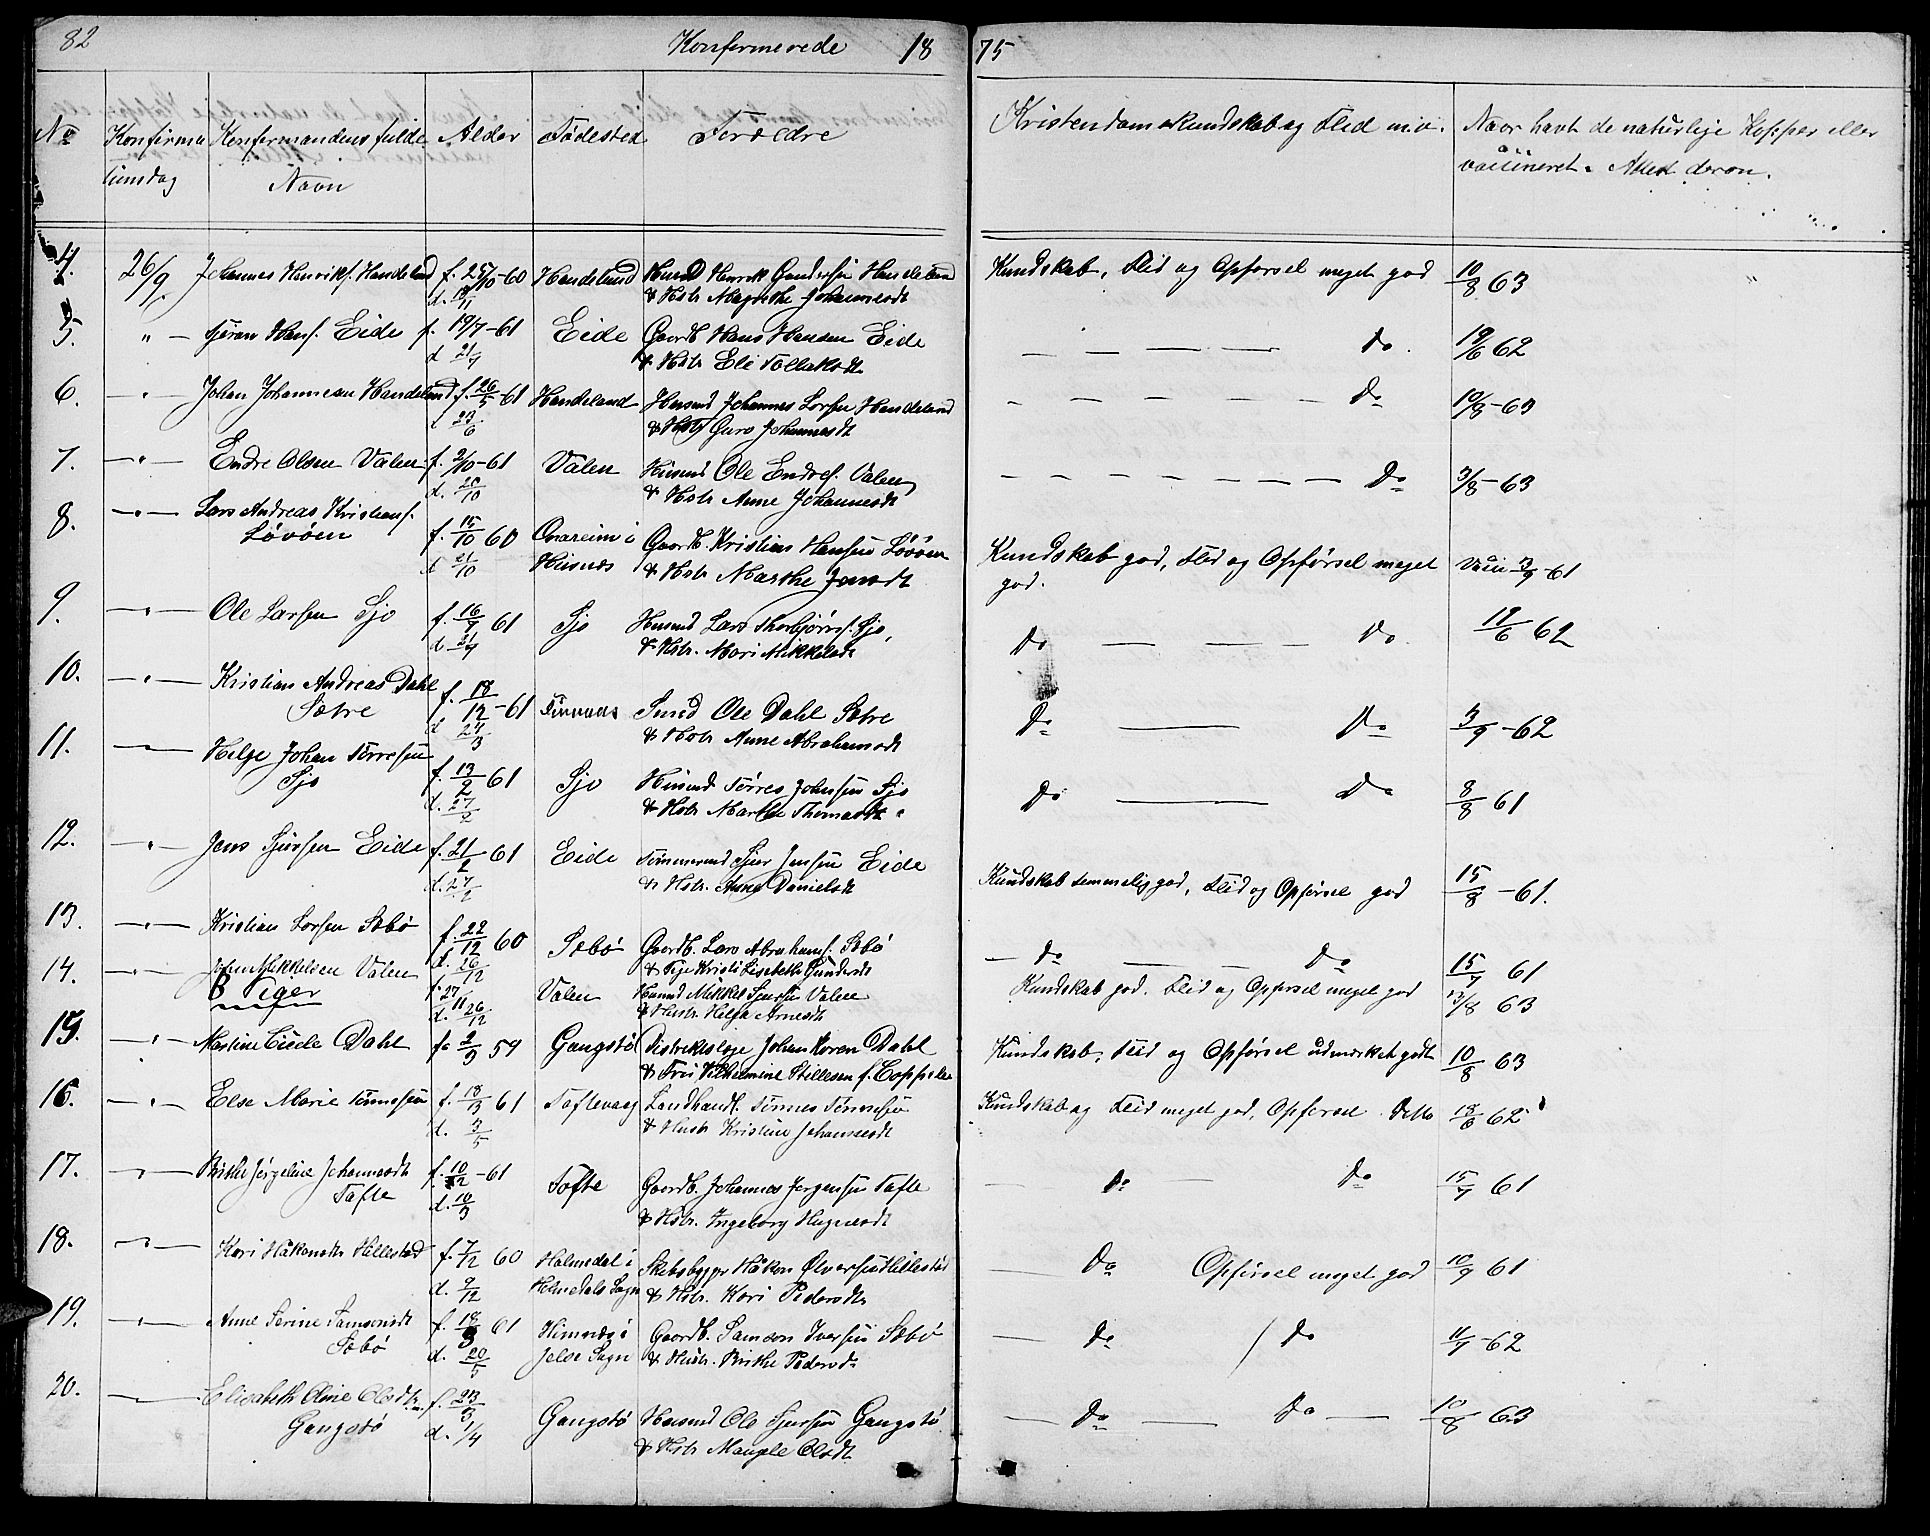 82 Konfirmerede 18 75
No Konfirma Konfirmandens fulde Alder Födested Forældre Kristendomskundskab og Flid m.v. Naar havt de naturlige Kopper eller
tionsdag Navn vaccineret. Attest derom.
4. 26/9. Johannes Henriks. Handeland f. 25/10-60 Handeland Husmd Henrik Gundersen Handeland Kundskab, Flid og Opførsel meget god 10/8 63
d. 18/11 & Hstr Magrethe Johannesdt
5. " — Sjøran Hans. Eide f. 19/7-61 Eide Gaardb. Hans Hansen Eide — — — — Do. 19/6 62
d 21/9 & Hstr Eli Tollaksdt.
6. — " — Johan Johannesen Handeland f. 26/5-61 Handeland Husmd Johannes Larsen Handeland — — — — — Do 10/8-63
d 23/6 & Hstr Guro Johannesdt
7. — " — Endre Olsen Valen f. 2/10-61 Valen Husmd Ole Endres. Valen — — — — — — Do 3/8-63
d. 20/10 & Hstr Anne Johannesdt
8. — " — Lars Andreas Kristians. f. 15/10 60 Onareim i Gaardb. Kristian Hansen Løvøen Kundskab god, Flid og Opførsel meget Vacc 3/9-61
Løvøen d 21/10 Husnæs & Hstr Marthe Jensdt god.
9. — " — Ole Larsen Sjo f. 16/7 61 Sjo Husmd Lars Thorbjörns. Sjo, Do — — — Do. 19/6 62
d 21/9 & Hstr. Mari Mikkelsdt
10. — " — Kristian Andreas Dahl f. 18/12-61 Finnaas Smed Ole Dahl Sætre Do — Do 3/9-62
Sætre d 24/3 & Hstr Anne Abrahamsdt
11. — " — Helge Johan Tørresen f. 13/2 61 Sjo Husmd Tørres Johnsen Sjo Do — Do 8/8 61
Sjo d. 27/2 & Hstr Marthe Thomasdt.
12. — " — Jens Sjursen Eide f. 21/2-61 Eide Tømmermd Sjur Jensen Eide Kundskab temmelig god, Flid og Opførsel god 15/8-61.
d. 27/2 & Hstr. Anna Danielsdt
13. — " — Kristian Larsen Sæbø f. 22/12 60 Sæbø Gaardb. Lars Abrahams. Sæbø — Do — — Do 15/7 61
d. 26/12 & Pige Kristi Lisabeth Gundersdt
14. — " — John Mikkelsen Valen f. 27/11 Valen Husmd Mikkel Sjursen Valen Kundskab god. Flid og Opførsel meget god 13/8 63
d. 26/12 & Hustr. Helga Arnesdt
B Piger
15. — " — Martine Dahl f. 2/9 59 Gangstø Distriktslæge Johan Koren Dahl Kundskab, Flid og Opførsel udmærket godt 10/8 63
& Fru Vilhelmine Stillesen f.
16. — " — Else Marie Tønnesen f. 18/3 61 Toftevaag Landhandl. Tønnes Tønnesen Kundskab og Flid meget god, Opførsel Ditto 18/6 62
d. 3/5 & Hustr Kristine Johannesdt
17. — " — Birthe Jørgeline Johannesdt f. 10/2-61 Tofte Gaardb. Johannes Jørgensen Tofte — Do — Do 15/7 61
Tofte d. 10/3 & Hstr. Ingeborg
18. — " — Kari Håkonsdtr Hillestad f. 7/12 60 Holmedal i Skibsbyggr Håkon Ølversen Hillestad — Do Opførsel meget god 10/9 61
d. 9/12 Holmedals Sogn & Hstr. Kari Pedersdt.
19. — " — Anne Serine Samsonsdt f. 18/3 61 i Gaardb. Samson Iversen Sæbø — Do / Do 11/7-62
Sæbø d. 20/5 Jelse Sogn & Hustr. Birthe Pedersdt
20. — Elisabeth Oline Olsdtr. f. 23/3 Gangstø Husmd Ole Sjursen Gangstø — Do — Do — 10/8 63
Gangstø d. 1/4 & Hstr Olsdt